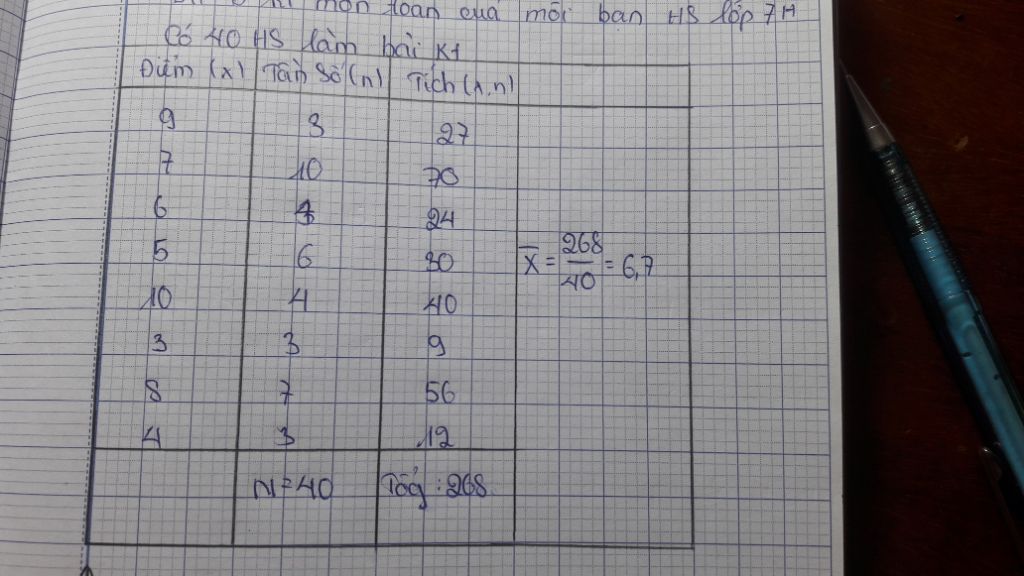 môn toán của mỗi bạn HS lớp 7A
Có 40 HS làm bài KT
Điểm (x) Tần Số (n) Tích (x.n)
9 3 27
7 10 70
6 4 24
5 6 30
X̄ = 268/40 = 6,7
10 4 40
3 3 9
8 7 56
4 3 12
N=40 Tổg : 268